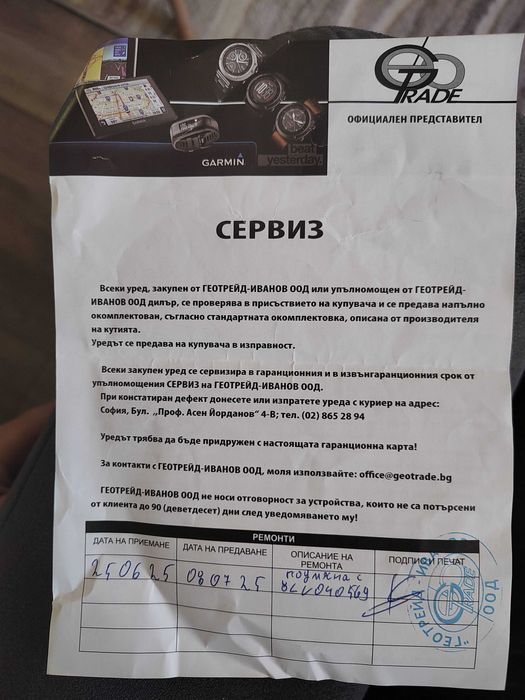 GEO
TRADE
ОФИЦИАЛЕН ПРЕДСТАВИТЕЛ
GARMIN
beat
yesterday.
СЕРВИЗ
Всеки уред, закупен от ГЕОТРЕЙД-ИВАНОВ ООД или упълномощен от ГЕОТРЕЙД-
ИВАНОВ ООД дилър, се проверява в присъствието на купувача и се предава напълно
окомплектован, съгласно стандартната окомплектовка, описана от производителя
на кутията.
Уредът се предава на купувача в изправност.
Всеки закупен уред се сервизира в гаранционния и в извънгаранционния срок от
упълномощения СЕРВИЗ на ГЕОТРЕЙД-ИВАНОВ ООД.
При констатиран дефект донесете или изпратете уреда с куриер на адрес:
София, Бул. „Проф. Асен Йорданов" 4-В; тел. (02) 865 28 94
Уредът трябва да бъде придружен с настоящата гаранционна карта!
За контакти с ГЕОТРЕЙД-ИВАНОВ ООД, моля използвайте: office@geotrade.bg
ГЕОТРЕЙД-ИВАНОВ ООД не носи отговорност за устройства, които не са потърсени
от клиента до 90 (деветдесет) дни след уведомяването му!
РЕМОНТИ
ДАТА НА ПРИЕМАНЕ ДАТА НА ПРЕДАВАНЕ ОПИСАНИЕ НА РЕМОНТА ПОДПИС И ПЕЧАТ
25 06 25 08 07 25 подмяна с
"ГЕОТРЕЙД ООД
TRADE